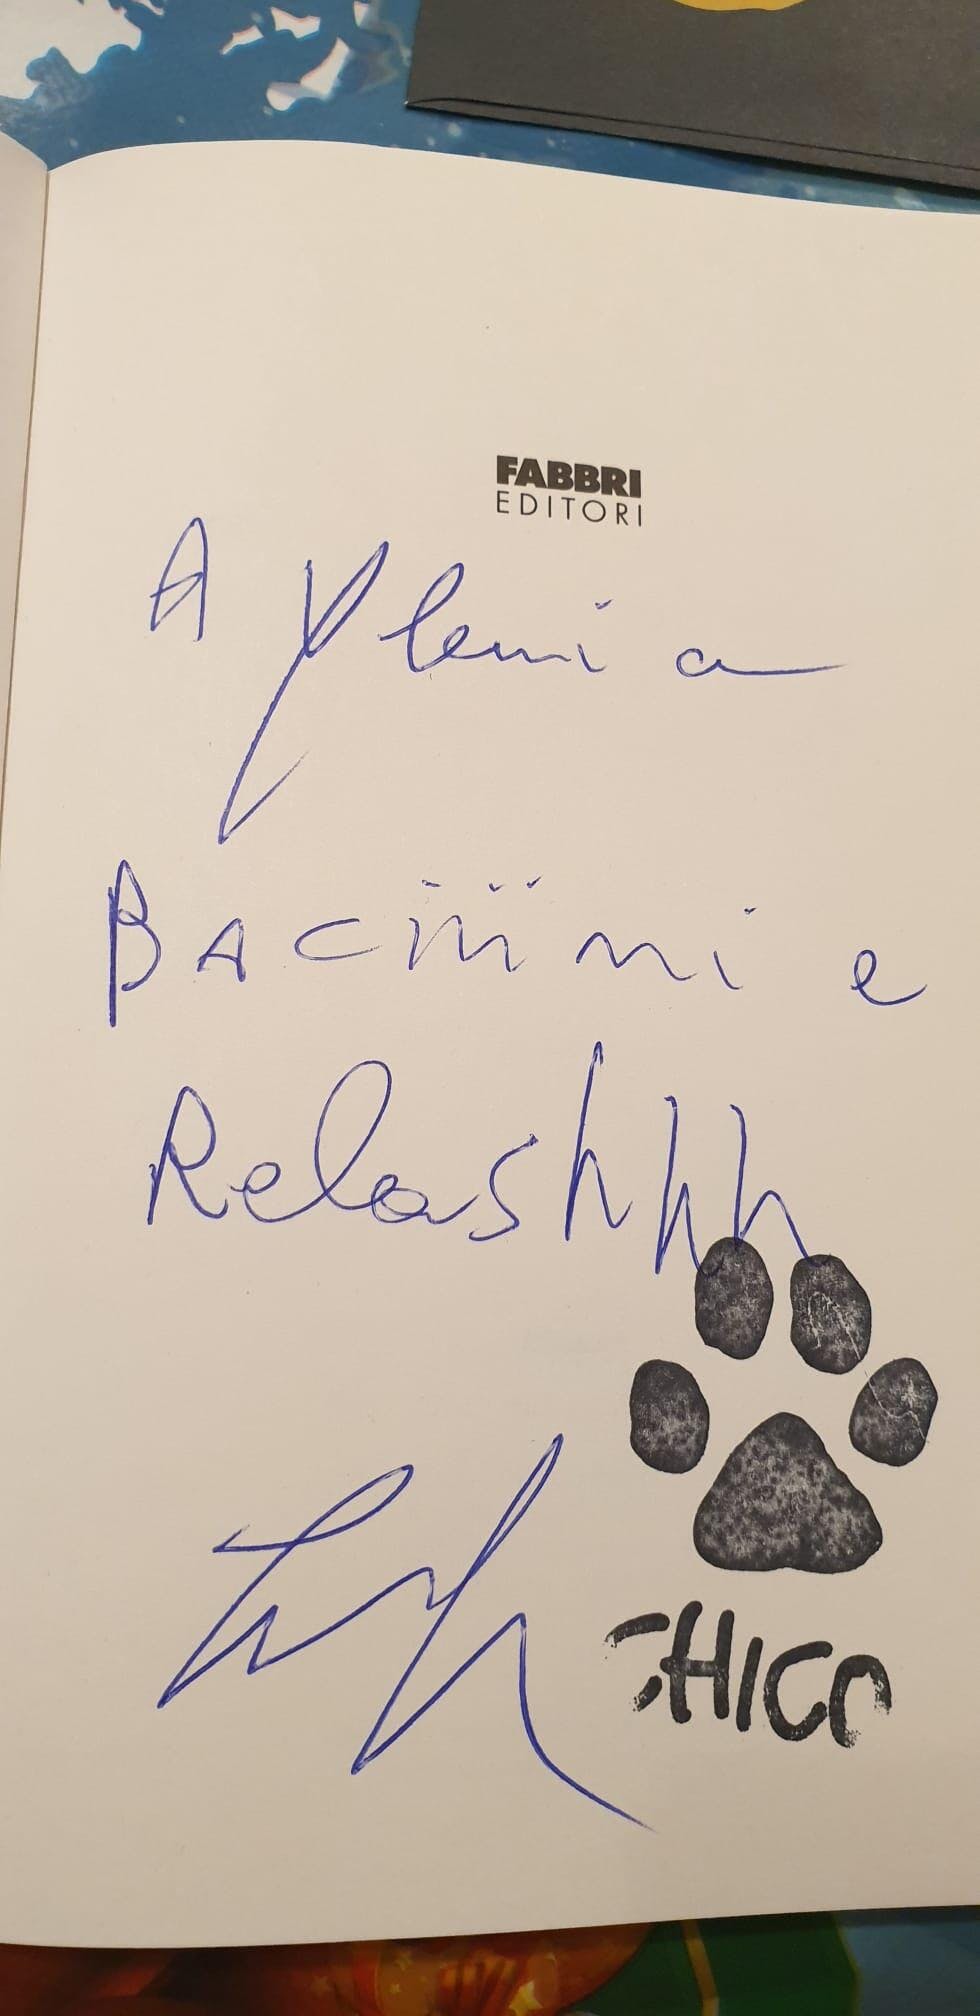 FABBRI
EDITORI
A Ylenia
BACiiini e
Relashhh
CHICO